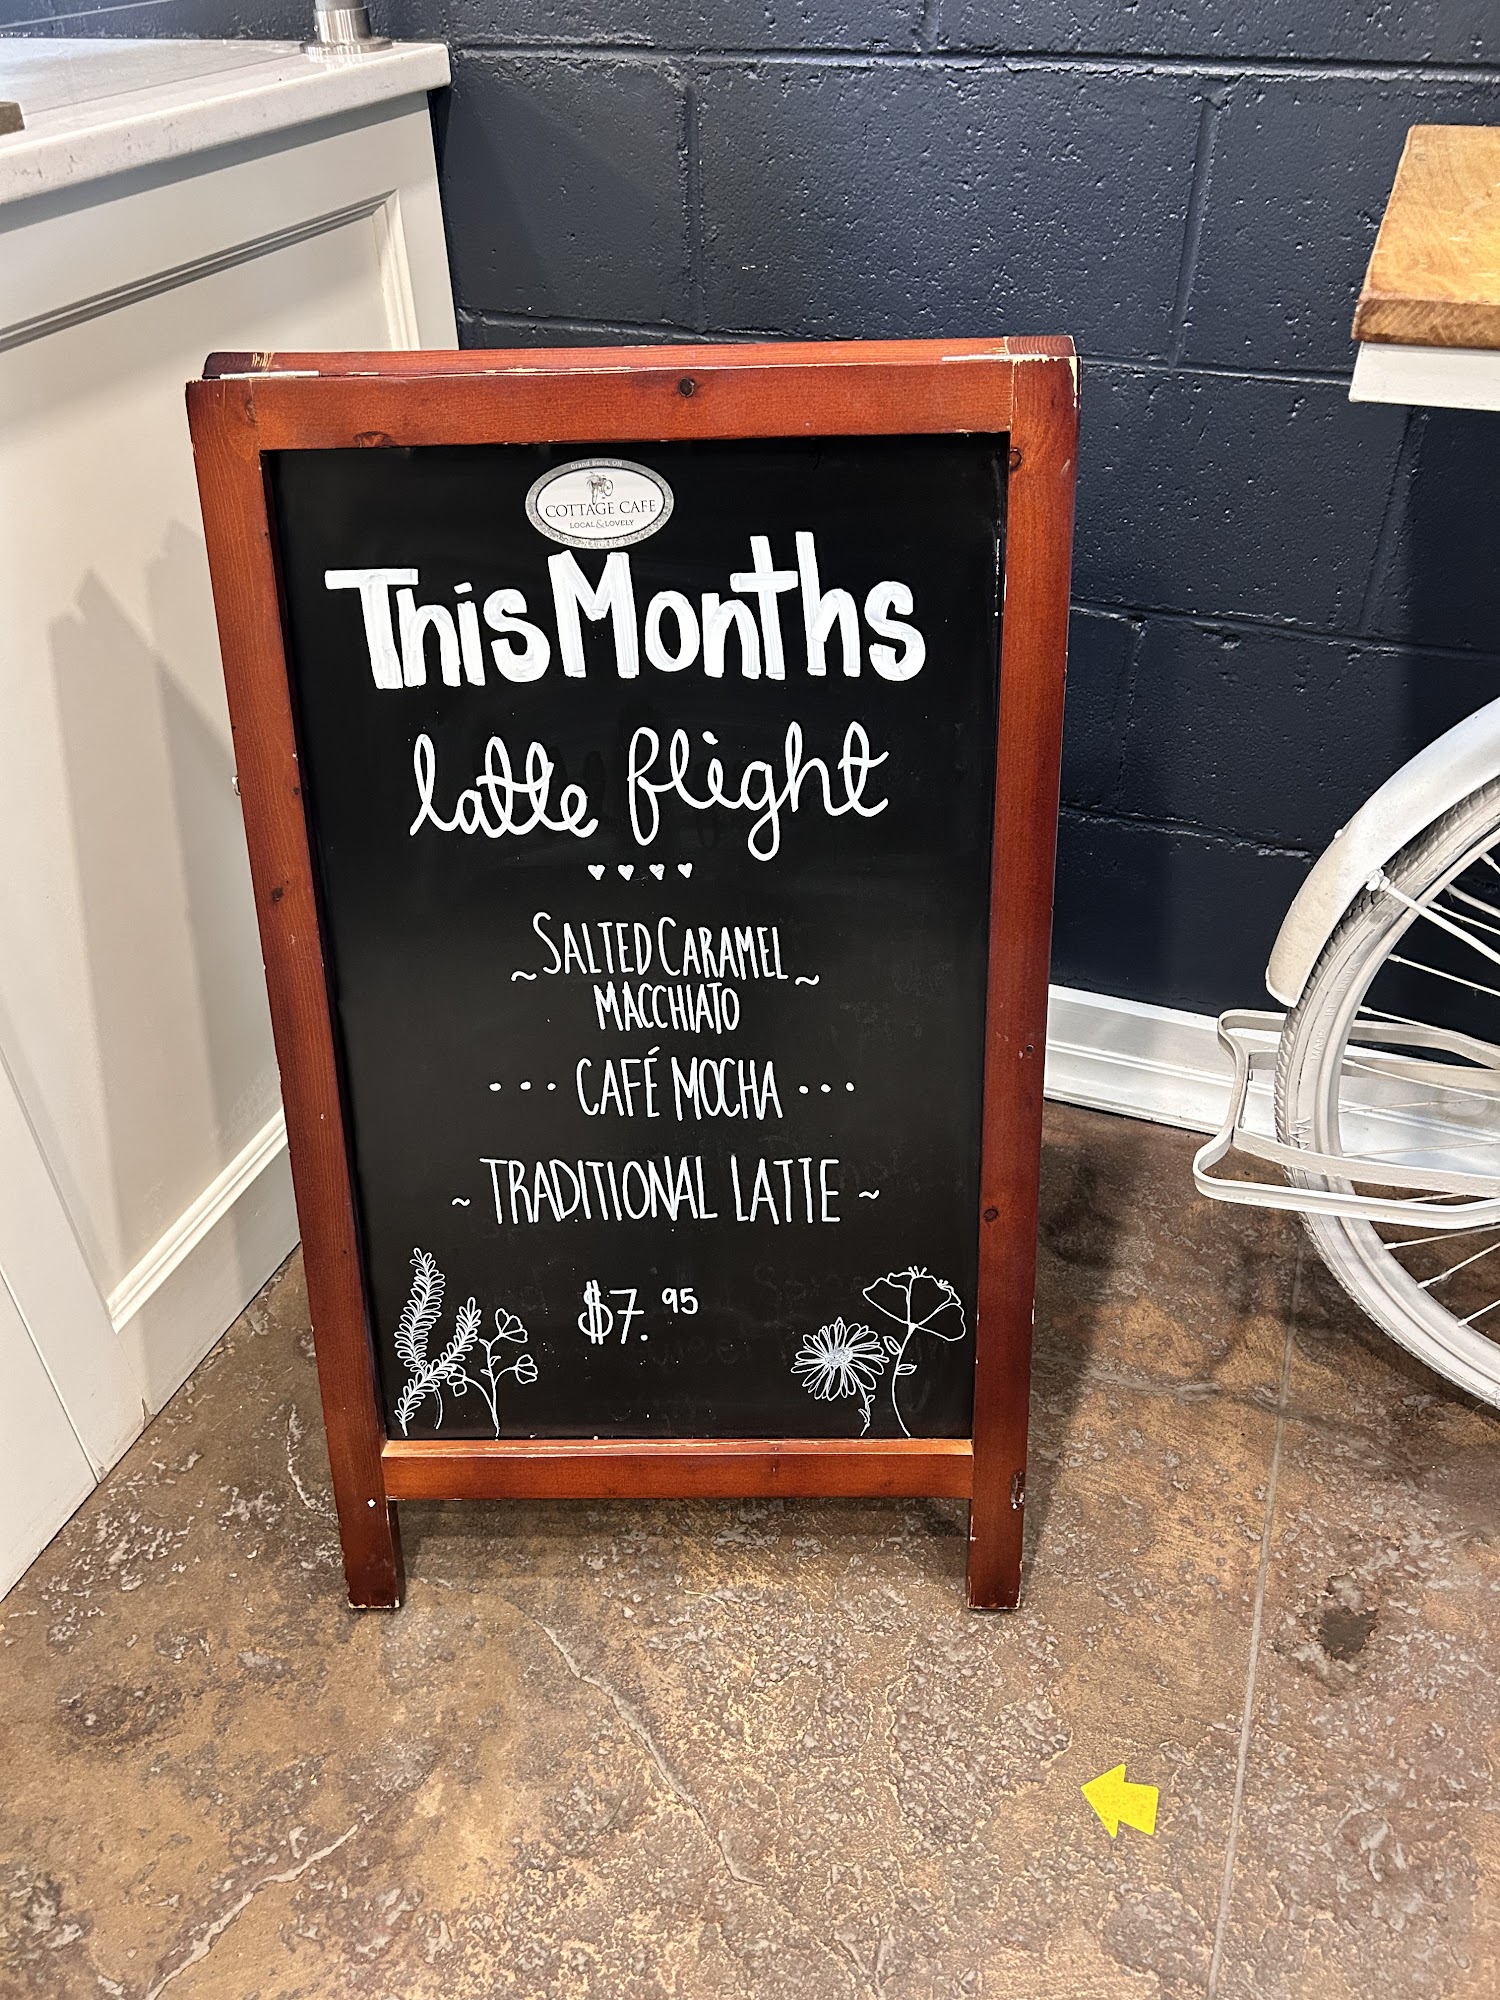 Grand Bend, ON
COTTAGE CAFE
LOCAL & LOVELY
This Months
latte flight
~ SALTED CARAMEL ~
MACCHIATO
... CAFÉ MOCHA ...
~ TRADITIONAL LATTE ~
$7.95